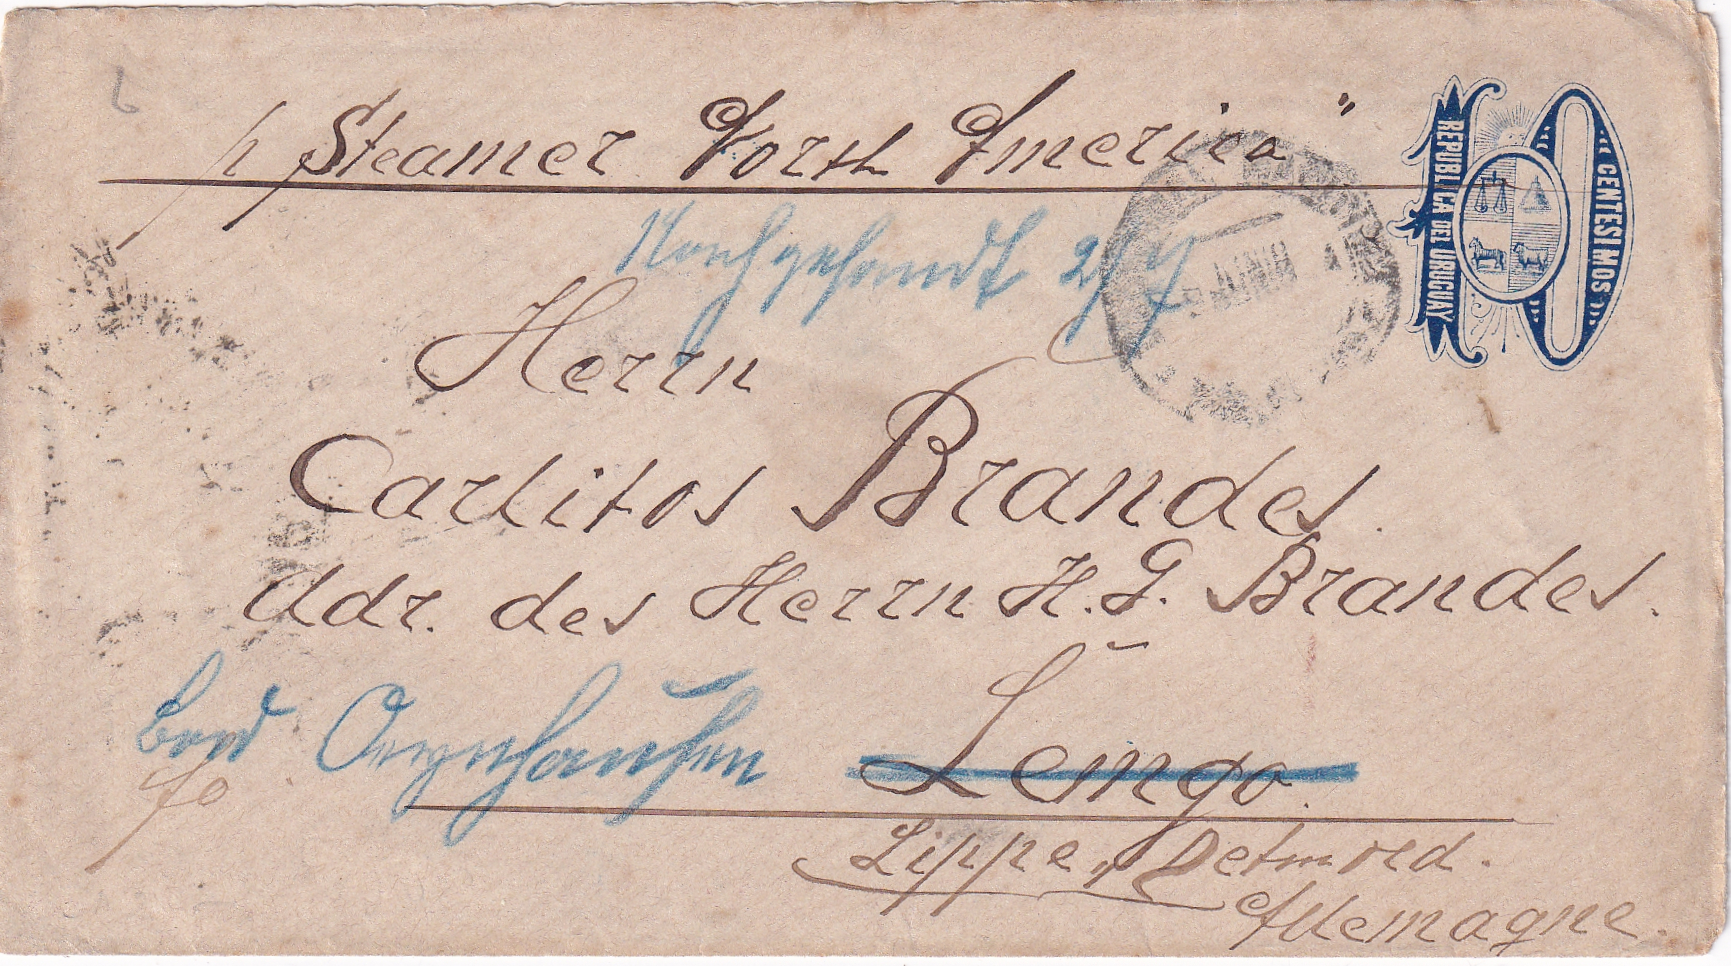 p Steamer North America"
REPUBLICA DEL URUGUAY
10
CENTESIMOS
Nachgesandt 2/7
Herrn
Carlitos Brandes.
Adr. des Herrn H. G. Brandes.
Bad Oeynhausen
Lemgo.
fo
Lippe, Detmold.
Allemagne.